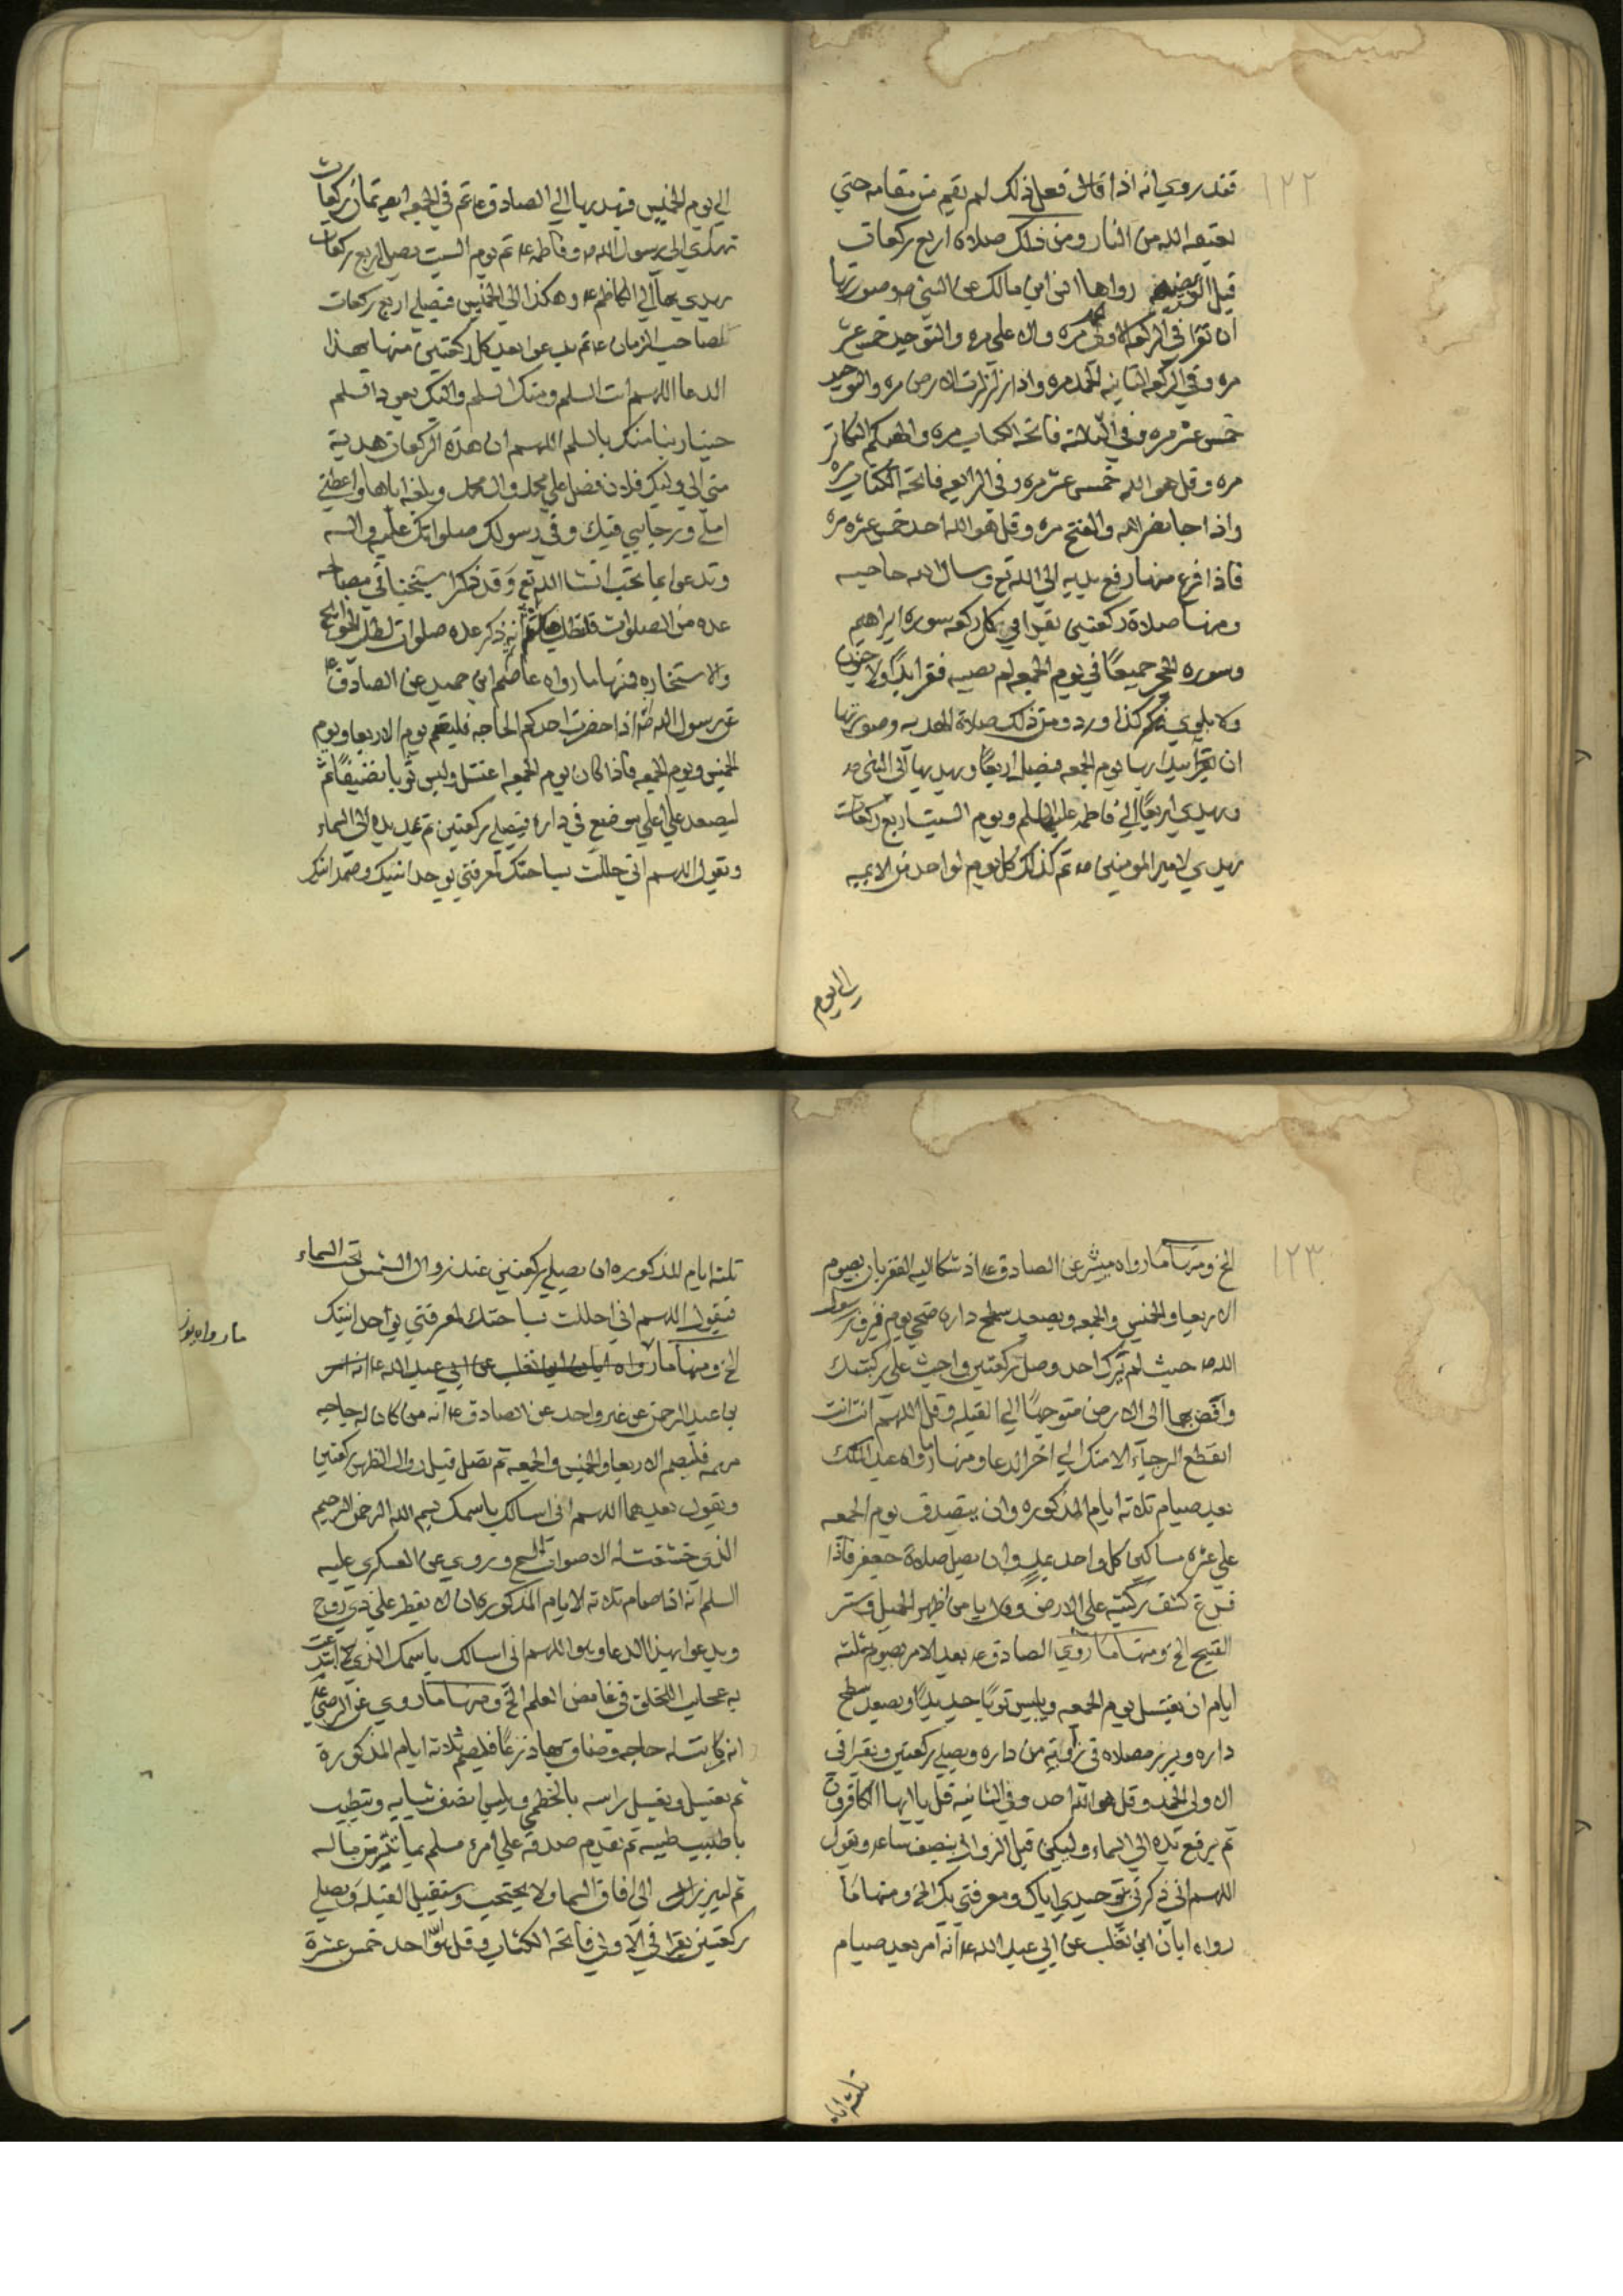 ١٢٢
فقد روي انه اذا قال وفعل ذلك لم يقم من مقامه حتي
يعتقه الله من النار ومن ذلك صلاة اربع ركعات
قبل الفريضه رواها انس ابن مالك عن النبي ص وصورتها
ان تقرا في الركعه الاولي الحمد مره والاعلي مره والتوحيد خمس عشر
مره وفي الركعه الثانيه الحمد مره واذا زلزلت الارض مره والتوحيد
خمس عشر مره وفي الثالثه فاتحة الكتاب مره والهيكم التكاثر
مره وقل هو الله خمس عشر مره وفي الرابعه فاتحة الكتاب مره
واذا جا نصر الله والفتح مره وقل هو الله احد خمس عشره مره
فاذا فرغ منها رفع يديه الي الله تع وسال الله حاجته
ومنها صلاة ركعتين يقرا في كل ركعه سورة ابراهيم
وسورة الحجر جميعًا في يوم الجمعه لم يصبه فقر ابدًا ولا جنون
ولا بلوي كذا ورد ومن ذلك صلاة الهديه وصورتها
ان يوم الجمعه فيصلي اربعًا ويهديها الي النبي ص
ويهدي اربعًا الي فاطمه عليها السلم ويوم السبت اربع ركعات
يهدي لامير المومنين ع ثم كذلك كل يوم لواحد من الايمه
الي يوم
الي يوم الخميس فيهديها الي الصادق ع ثم في الجمعه ايضا ثمان ركعات
تهدي الي رسول الله ص وفاطمه ع ثم يوم السبت يصلي اربع ركعات
يهدي بها الي الكاظم ع وهكذا الي الخميس فيصلي اربع ركعات
لصاحب الزمان ع ثم يدعوا بعد كل ركعتين منها بهذا
الدعا اللهم انت السلم ومنك السلم واليك يعود السلم
حينا ربنا منك بالسلم اللهم ان هذه الركعات هدية
مني الي وليك فلان فصل علي محمد وال محمد وبلغه اياها واعطني
املي ورجايي فيك وفي رسولك صلواتك عليه واله
وتدعوا بما تحب انشا الله تع وقد ذكر شيخنا في مصباحه
عده من الصلوات ذكر عده صلوات لطلب الحوايج
والاستخاره فمنها ما رواه عاصم ابن حميد عن الصادق ع
عن رسول الله ص اذا حضرت احدكم الحاجه فليصم يوم الاربعا ويوم
الخميس ويوم الجمعه فاذا كان يوم الجمعه اغتسل ولبس ثوبا نظيفًا ثم
ليصعد علي اعلي موضع في داره فيصلي ركعتين ثم يمد يده الي السماء
ويقول اللهم اني حللت بساحتك لمعرفتي بوحدانيتك وصمدانيتك
١٢٣
الخ ومنها ما رواه ميسر عن الصادق ع اذ شكا اليه الفقر بان يصوم
الاربعا والخميس والجمعه ويصعد سطح داره ضحي يوم فيزور رسول
الله ص حيث لم يرك احد وصل ركعتين واجث علي ركبتيك
وافض بهما الي الارض متوجهًا الي القبله وقل اللهم انت انت
انقطع الرجاء الا منك الي اخر الدعا ومنها ما رواه عبد الملك
بعد صيام ثلاثة ايام المذكوره وان يتصدق يوم الجمعه
علي عشره مساكين كل واحد بمد وان يصلي صلاة جعفر فاذا
فرغ كشف ركبتيه علي الارض وقال يا من اظهر الجميل وستر
القبيح الخ ومنها ما روي الصادق ع بعد الامر بصيام ثلثه
ايام ان يغتسل يوم الجمعه ويلبس ثوبًا جديدًا ويصعد سطح
داره ويبرز مصلاه في زاوية من داره ويصلي ركعتين ويقرا في
الاولي الحمد وقل هو الله احد وفي الثانيه قل يا ايها الكافرون
ثم يرفع يده الي السماء وليكن قبل الزوال بنصف ساعه ويقول
اللهم اني ذكرت توحيدي اياك ومعرفتي بك الخ ومنها ما
رواه ابان ابن تغلب عن ابي عبد الله ع انه امر بعد صيام
ثلثه ايام
ثلثه ايام المذكوره ان يصلي ركعتين عند زوال الشمس تحت السماء
فيقول اللهم اني احللت بساحتك لمعرفتي بوحدانيتك
الخ ومنها ما رواه ابان ابن تغلب عن ابي عبد الله ع انه امر
ما رواه يونس
بن عبد الرحمن عن غير واحد عن الصادق ع انه من كان له حاجه
مهمه فليصم الاربعا والخميس والجمعه ثم تصلي قبل زوال الظهر ركعتين
ويقول بعدهما اللهم اني اسالك باسمك بسم الله الرحمن الرحيم
الذي خشعت له الاصوات الخ وروي عن العسكري عليه
السلم انه اذا صام ثلاثة الايام المذكوره ان لا يفطر علي ذي روح
ويدعوا بهذا الدعا وهو اللهم اني اسالك باسمك الذي ابتدعت
به عجايب الخلق في غامض العلم الخ ومنها ما روي عن الرضي ع
انه من كانت له حاجه وضاق بها ذرعًا فليصم ثلاثة ايام المذكورة
ثم يغتسل ويغسل راسه بالخطمي ويلبس انضف ثيابه ويتطيب
باطيب طيبه ثم يقدم صدقة علي امرء مسلم بما تيسر من ماله
ثم ليبرز الي افاق السما ولا يحتجب ويستقبل القبله ويصلي
ركعتين يقرا في الاولي فاتحة الكتاب وقل هو الله احد خمس عشرة